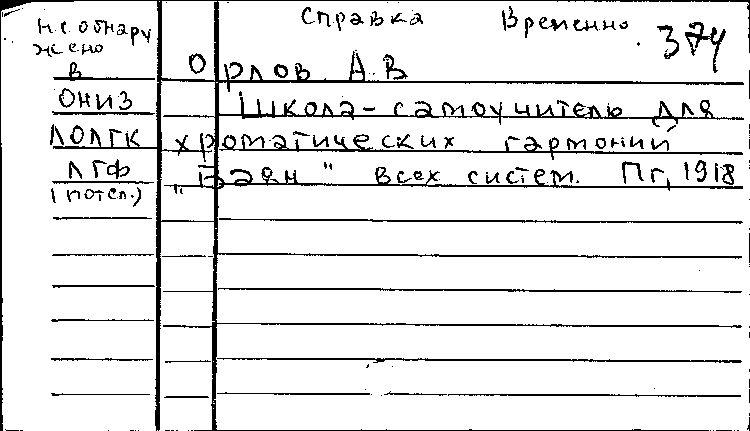 Не обнару
жено
Справка Временно 374
в Орлов А.В
ОНИЗ Школа-самоучитель для
ЛОЛГК хроматических гармоний
ЛГФ "Баян" всех систем. Пг, 1918